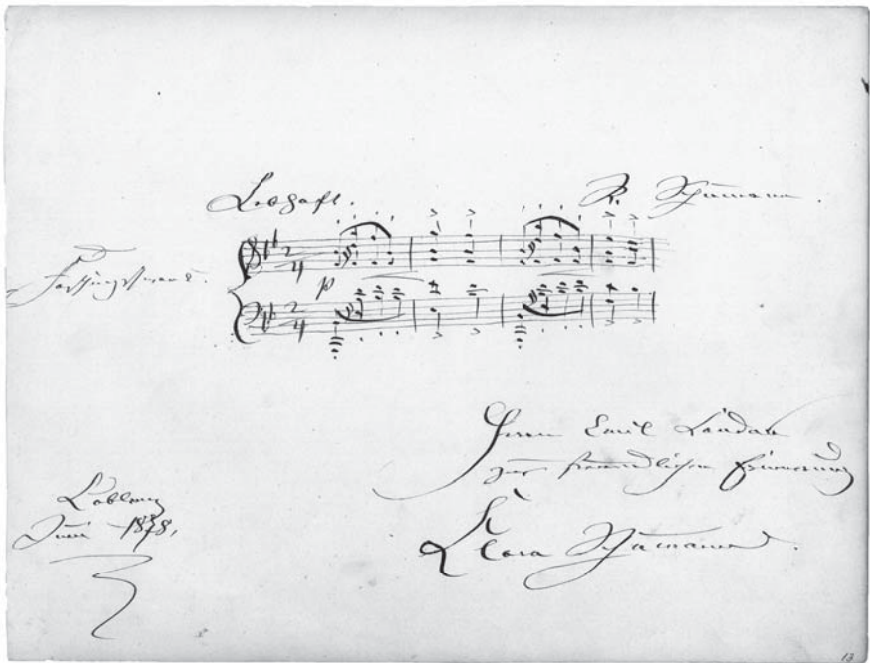 Lebhaft. R. Schumann.
Faschingsschwank.
2/4
p
2/4
Herrn Emil Landau
zur freundlichen Erinnerung
Clara Schumann.
Coblenz
Juni 1878,
13